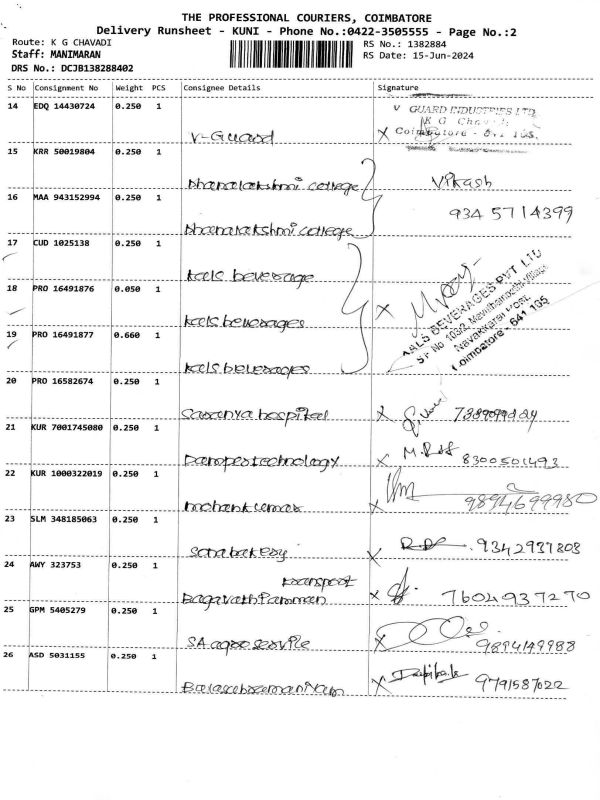 THE PROFESSIONAL COURIERS, COIMBATORE
Delivery Runsheet - KUNI - Phone No.:0422-3505555 - Page No.:2
Route: K G CHAVADI
RS No.: 1382884
Staff: MANIMARAN
RS Date: 15-Jun-2024
DRS No.: DCJB138288402
S No Consignment No Weight PCS Consignee Details Signature
14 EDQ 14430724 0.250 1
V GUARD INDUSTRIES LTD
K G Chavadi
V-Guard X Coimbatore - 641 105.
15 KRR 50019804 0.250 1
Dhanalakshmi college Vikash
16 MAA 943152994 0.250 1
934 5714399
Dhanalakshmi college
17 CUD 1025138 0.250 1
kals beverage
18 PRO 16491876 0.050 1
X
KALS BEVERAGES PVT LTD
SF No 103/2, Mavuthampathi Village
Navakkarai Post,
Coimbatore - 641 105
kals beverages
19 PRO 16491877 0.660 1
kals beverages
20 PRO 16582674 0.250 1
Saranya hospital X
21 KUR 7001745080 0.250 1
technology X 8300501493
22 KUR 1000322019 0.250 1
mohankumar X 9894699980
23 SLM 348185063 0.250 1
sara bakery X 9342937808
24 AWY 323753 0.250 1
transport
X 7604937270
25 GPM 5405279 0.250 1
SA agro service X 9894149988
26 ASD 5031155 0.250 1
Balasubramaniyam X 9791587022